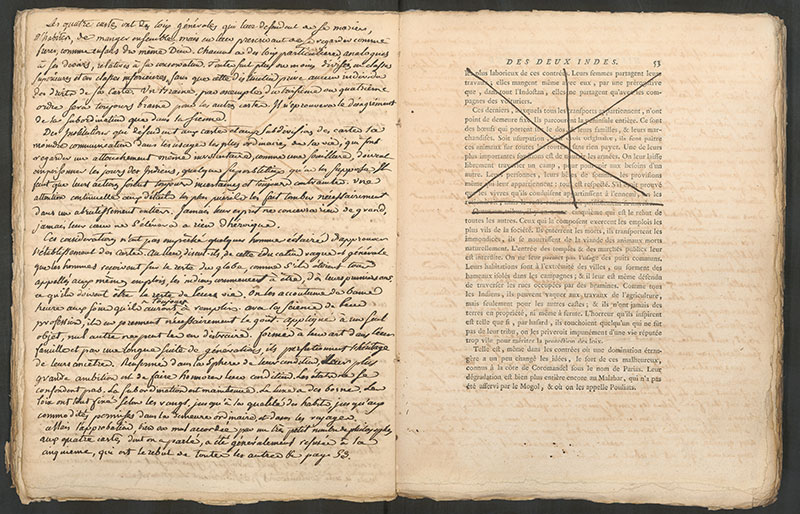 les quatre castes ont des loix générales, qui leur défendent de se marier,
d'habiter, de manger ensemble, mais en leur prescrivant de se regarder comme
frères, comme enfans du même Dieu. Chacune a des loix particulières, analogues
à ses devoirs, relatives à sa conservation. Toutes sont plus ou moins divisées en classes
supérieures et en classes inférieures, sans que cette distinction prive aucun individu
des droits de sa caste. Un Brame, par exemple, du troisieme ou quatrieme
ordre sera toujours brame pour les autres castes. Il n'éprouvera le désagrément
de la subordination que dans la sienne.
Des Institutions qui défendent aux castes et aux subdivisions des castes la
moindre communication dans les usages les plus ordinaires de la vie, qui font
regarder un attouchement même involontaire, comme une souillure, doivent
empoisonner les jours des Indiens, quelque superstitieux qu'on les suppose. Il
faut que leurs actions soient toujours incertaines et toujours contraintes. Une
attention continuelle aux détails les plus puérils les fait tomber nécessairement
dans un abrutissement entier. Jamais leur esprit ne concevra rien de grand,
jamais leur cœur ne s'élevera à rien d'héroique.
Ces considérations n'ont pas empêché quelques hommes éclairés d'approuver
l'établissement des castes. Au lieu, disent-ils, de cette education vague et générale
que les hommes reçoivent sur le reste du globe, comme s'ils étoient tous
appelés aux mêmes emplois, les indiens commencent à être, dès leurs premiers ans
ce qu'ils doivent être le reste de leur vie. On les accoutume de bonne
heure aux fonctions qu'ils auront à remplir. Avec la science de leur
profession, ils en prennent nécessairement le goût. appliqué à un seul
objet, nul autre ne peut les en distraire. formés à leur art dans leur
famille et par une longue suite de générations, ils perfectionnent l'héritage
de leurs ancêtres. Renfermés dans la sphere de leur condition, leur plus
grande ambition est de faire honneur à leur condition. Les etats ne se
confondent pas. La subordination est maintenue. Le luxe a des bornes. Les
loix ont tout fixé selon les rangs, jusqu'à la qualité des habits, jusqu'aux
commodités permises dans les demeures ordinaires, et dans les voyages.
Mais l'approbation, bien ou mal accordée par un très petit nombre de philosophes
aux quatre castes dont on a parlé, a été généralement refusée à la
cinquieme, qui est le rebut de toutes les autres &c page 53.
DES DEUX INDES. 53
les plus laborieux de ces contrées. Leurs femmes partagent leurs
travaux ; elles mangent même avec eux, par une prérogative
que, dans tout l'Indostan, elles ne partagent qu'avec les com-
pagnes des voituriers.
Ces derniers, auxquels tous les transports appartiennent, n'ont
point de demeure fixe. Ils parcourent la péninsule entière. Ce sont
des bœufs qui portent sur le dos & leurs familles, & leurs mar-
chandises. Soit usurpation, soit droit originaire, ils sont paître
ces animaux sur toutes les routes sans rien payer. Une de leurs
plus importantes fonctions est de nourrir les armées. On leur laisse
librement traverser un camp, pour pourvoir aux besoins d'un
autre. Leurs personnes, leurs bêtes de somme, les provisions
mêmes qui leur appartiennent : tout est respecté. S'il étoit prouvé
que les vivres qu'ils conduisent appartinssent à l'ennemi, on les
cinquième qui est le rebut de
toutes les autres. Ceux qui la composent exercent les emplois les
plus vils de la société. Ils enterrent les morts, ils transportent les
immondices, ils se nourrissent de la viande des animaux morts
naturellement. L'entrée des temples & des marchés publics leur
est interdite. On ne leur permet pas l'usage des puits communs.
Leurs habitations sont à l'extrémité des villes, ou forment des
hameaux isolés dans les campagnes ; & il leur est même défendu
de traverser les rues occupées par des bramines. Comme tous
les Indiens, ils peuvent vaquer aux travaux de l'agriculture,
mais seulement pour les autres castes ; & ils n'ont jamais des
terres en propriété, ni même à ferme. L'horreur qu'ils inspirent
est telle que si, par hasard, ils touchoient quelqu'un qui ne fût
pas de leur tribu, on les priveroit impunément d'une vie réputée
trop vile pour mériter la protection des loix.
Telle est, même dans les contrées où une domination étran-
gère a un peu changé les idées, le sort de ces malheureux,
connus à la côte de Coromandel sous le nom de Parias. Leur
dégradation est bien plus entière encore au Malabar, qui n'a pas
été asservi par le Mogol, & où on les appelle Pouliats.